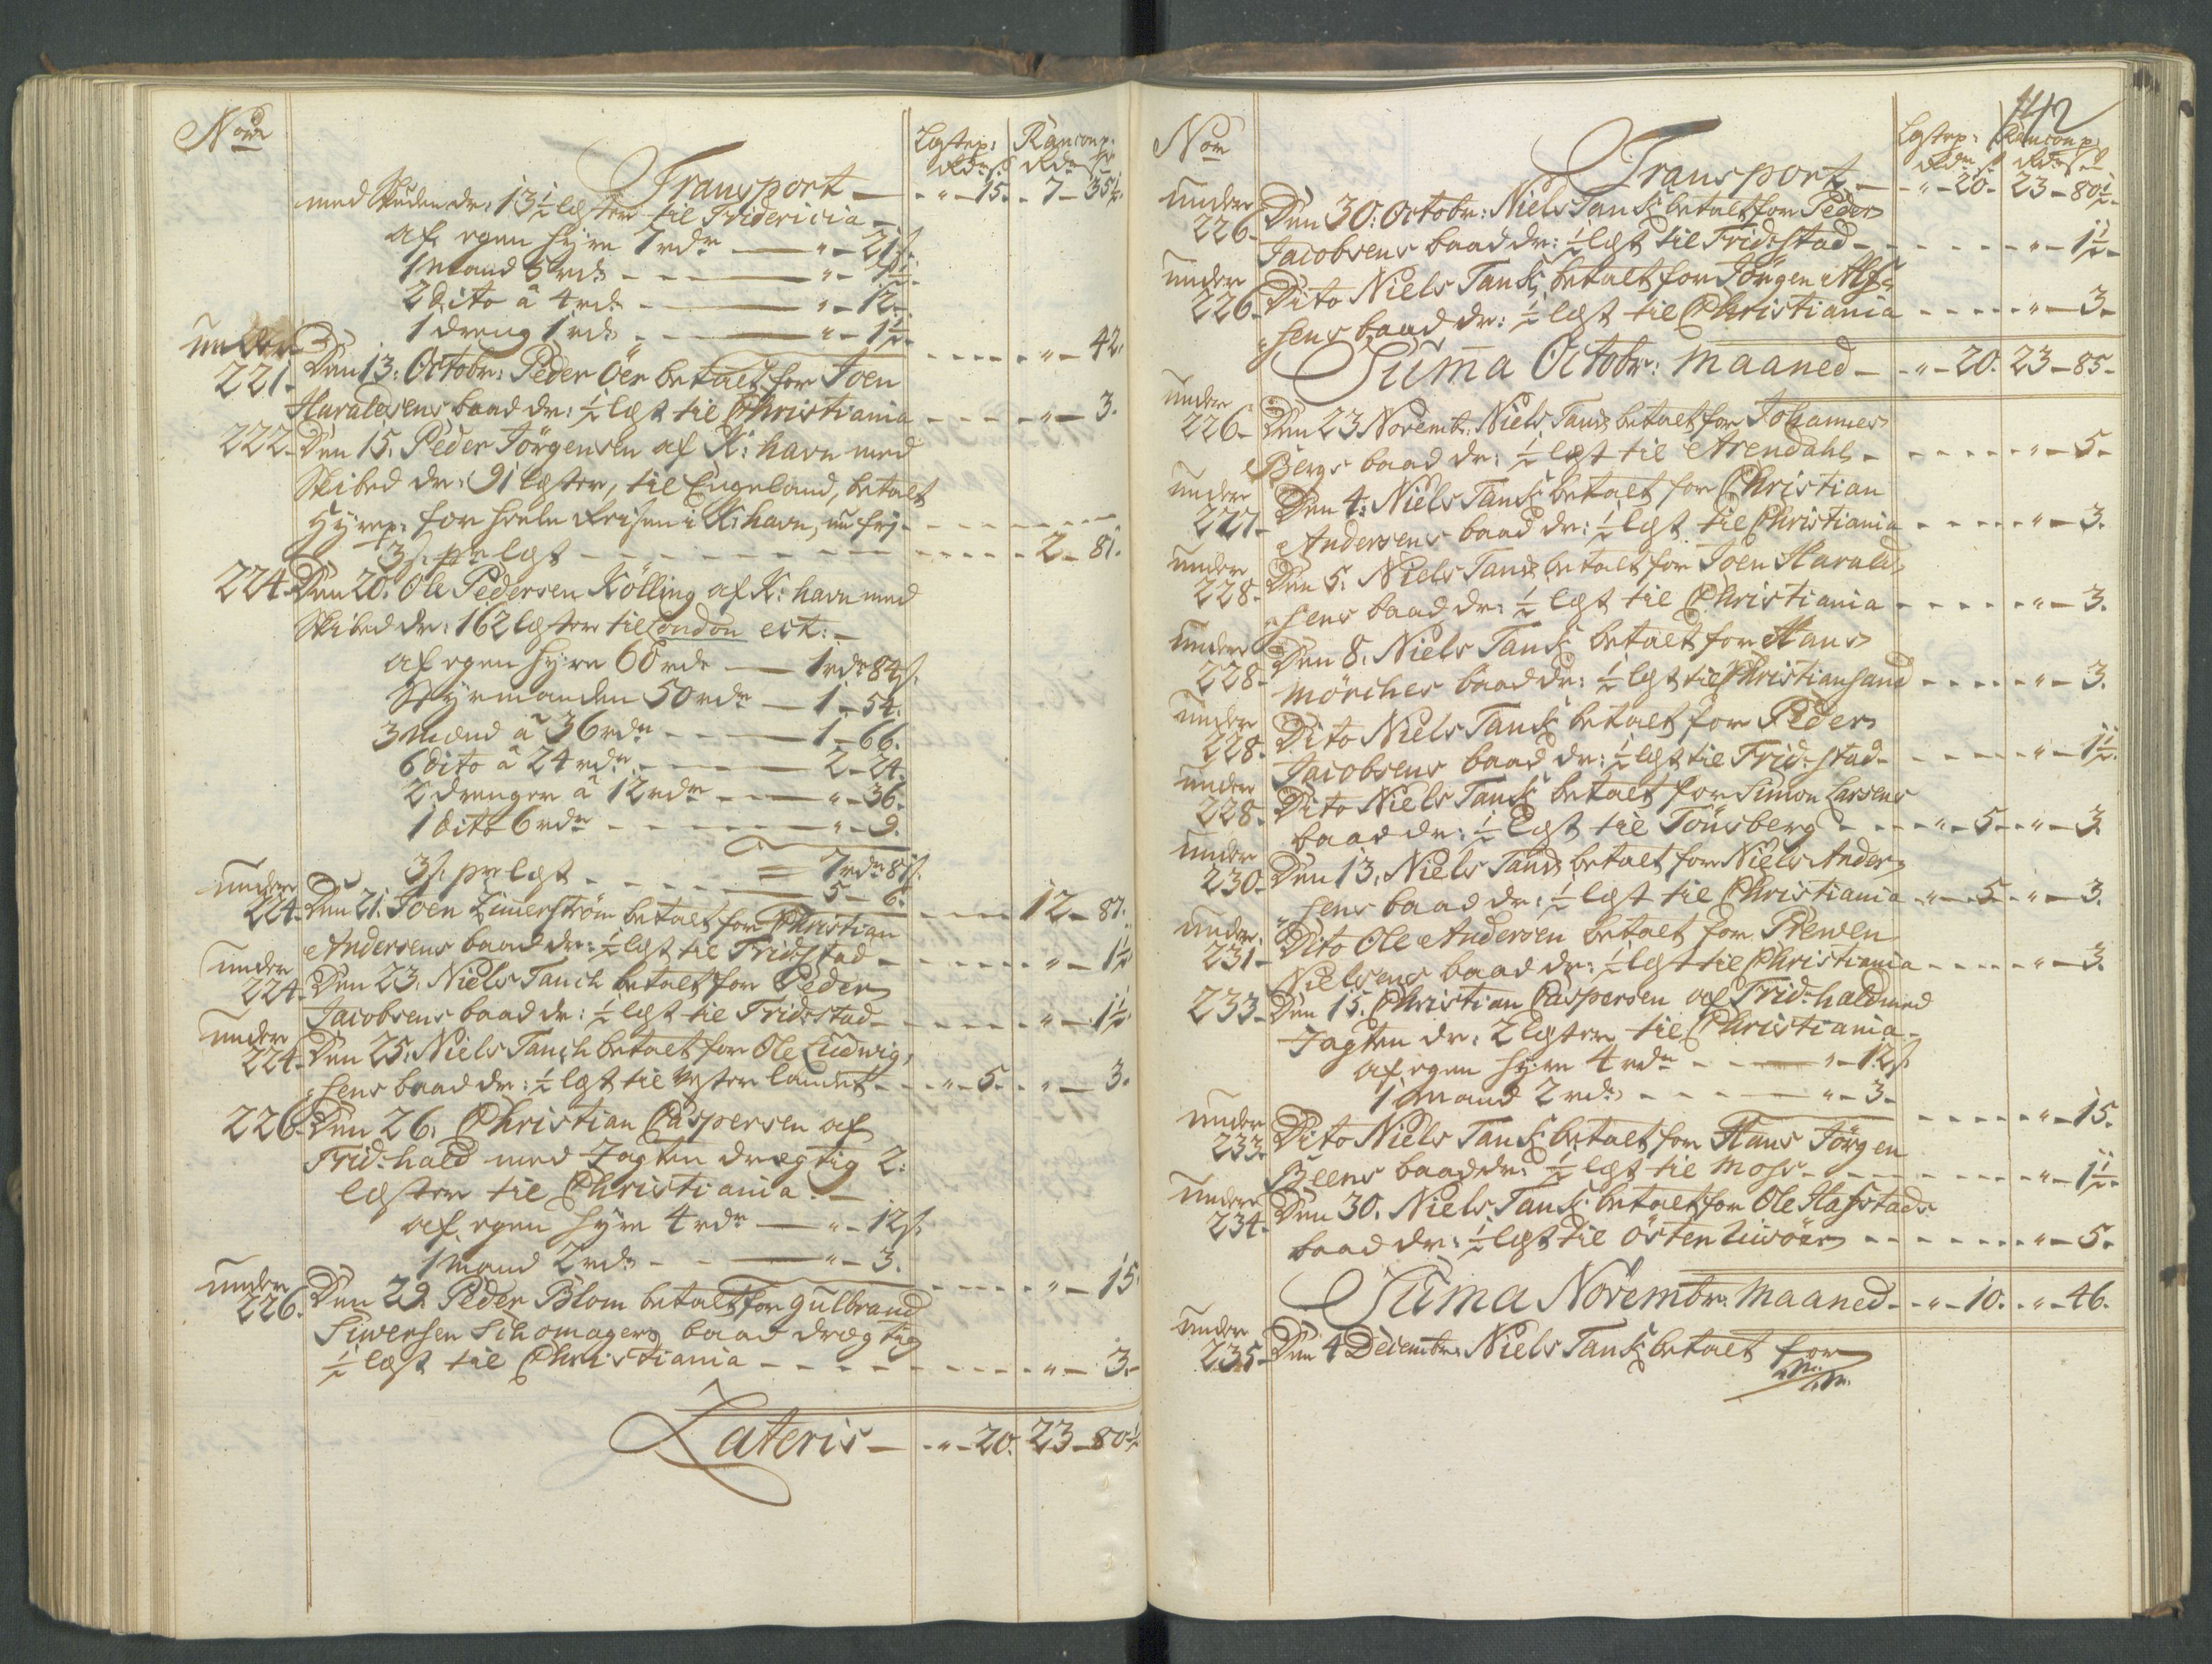 No
Lastep: Ranconp:
Rdr s. Rdr s.
Transport — - " - 15. - 7 - 35½.
med Skuden dr: 13½ lester til Fridericia —
af egen hyre 7 rdr — " - 21 s.
1 Mand 5 rdr - - — " - 7½.
2 dito â 4 rdr - — " - 12.
1 dreng 1 rdr - — " - 1½.
- - - - " - 42.
under
221. Den 13: Octobr: Peder Öer betalt for Joen
Haraldsens baad dr: ½ lest til Christiania - - - - " - 3.
222. Den 15. Peder Jörgensen af K:havn med
Skibed dr: 91 lester, til Engeland, betalt
Hyrep: for heele Reisen i K:havn, nu frj -
3 s. pr lest - - - - - - 2 - 81.
224. Den 20. Ole Pedersen Kölling af K:havn med
Skibed dr: 162 lester til London ect: —
af egen hyre 60 rdr — 1 rdr 84 s.
Styrmanden 50 rdr — 1 - 54.
3 Mænd â 36 rdr - - — 1 - 66.
6 dito â 24 rdr - - — 2 - 24.
2 drenger â 12 rdr - - — " - 36.
1 dito 6 rdr - - - — " - 9.
= 7 rdr 81 s.
3 s. pr lest - - - - — 5 - 6.
- - - 12 - 87.
under
224. Den 21. Joen Zimerström betalt for Christian
Andersens baad dr: ½ lest til Fridrstad - - - - " - 1½.
under
224. Den 23. Niels Tanck betalt for Peder
Jacobsens baad dr: ½ lest til Frid:stad - - - - " - 1½.
under
224. Den 25. Niels Tanch betalt for Ole Ludwig,
"sens baad dr: ½ lest til Wester landet - - " - 5. - " - 3.
226. Den 26. Christian Caspersen af
Frid-hald med Jagten drægtig 2:
lester til Christiania. —
af egen hyre 4 rdr — " - 12 s.
1 Mand 2 rdr - - — " - 3.
- - - - " - 15.
under
226. Den 29. Peder Blom betalt for Gulbrand
Siwersen Schomagers baad drægtig
½ lest til Christiania - - - - - " - 3.
Lateris — - " - 20. 23 - 80½.
142
No
Lastep: Rancons:
Rdr s. Rdr s.
Transport — - " - 20. 23 - 80½.
under
226. Den 30: Octobr: Niels Tank betalt for Peder
Jacobsens baad dr: ½ lest til Frid:stad - - - - " - 1½.
under
226. Dito Niels Tank betalt for Jörgen Alf=
"sens baad dr: ½ lest til Christiania - - - - " - 3.
Suma Octobr: Maaned — - " - 20. 23 - 85.
under
226. Den 23 Novemb: Niels Tank betalt for Johannes
Bergs baad dr: ½ lest til Arendahl - - - - " - 5.
under
227. Den 4: Niels Tank betalt for Christian
Andersens baad dr: ½ lest til Christiania - - - - " - 3.
under
228. Den 5. Niels Tank betalt for Joen Harald,
"sens baad dr: ½ lest til Christiania - - - - " - 3.
under
228. Den 8. Niels Tank betalt for Hans
Mörches baad dr: ½ lest til Christiansand - - - - " - 3.
under
228. Dito Niels Tank betalt for Peder
Jacobsens baad dr: ½ lest til Frid-stad - - - - " - 1½.
under
228. Dito Niels Tank betalt for Simon Larsens
baad dr: ½ lest til Tönsberg - - - " - 5. - " - 3.
under
230. Den 13. Niels Tank betalt for Niels Anders,
"sens baad dr: ½ lest til Christiania - " - 5. - " - 3.
under
231. Dito Ole Andersen betalt for Prewen
Nielsens baad dr: ½ lest til Christiania - - - - " - 3.
233. Den 15. Christian Caspersen af Frid-hald med
Jagten dr: 2 lester til Christiania -
af egen hyre 4 rdr - - — " - 12 s.
1 Mand 2 rdr - - - — " - 3.
- - - - " - 15.
under
233. Dito Niels Tank betalt for Hans Jörgen
Beens baad dr: ½ lest til Moss - - - - " - 1½.
under
234. Den 30. Niels Tank betalt for Ole Hafstads
baad dr: ½ lest til Östen - - - - " - 5.
Suma Novembr: Maaned - - " - 10. - " - 46.
under
235. Den 4 Decembr: Niels Tank betalt for